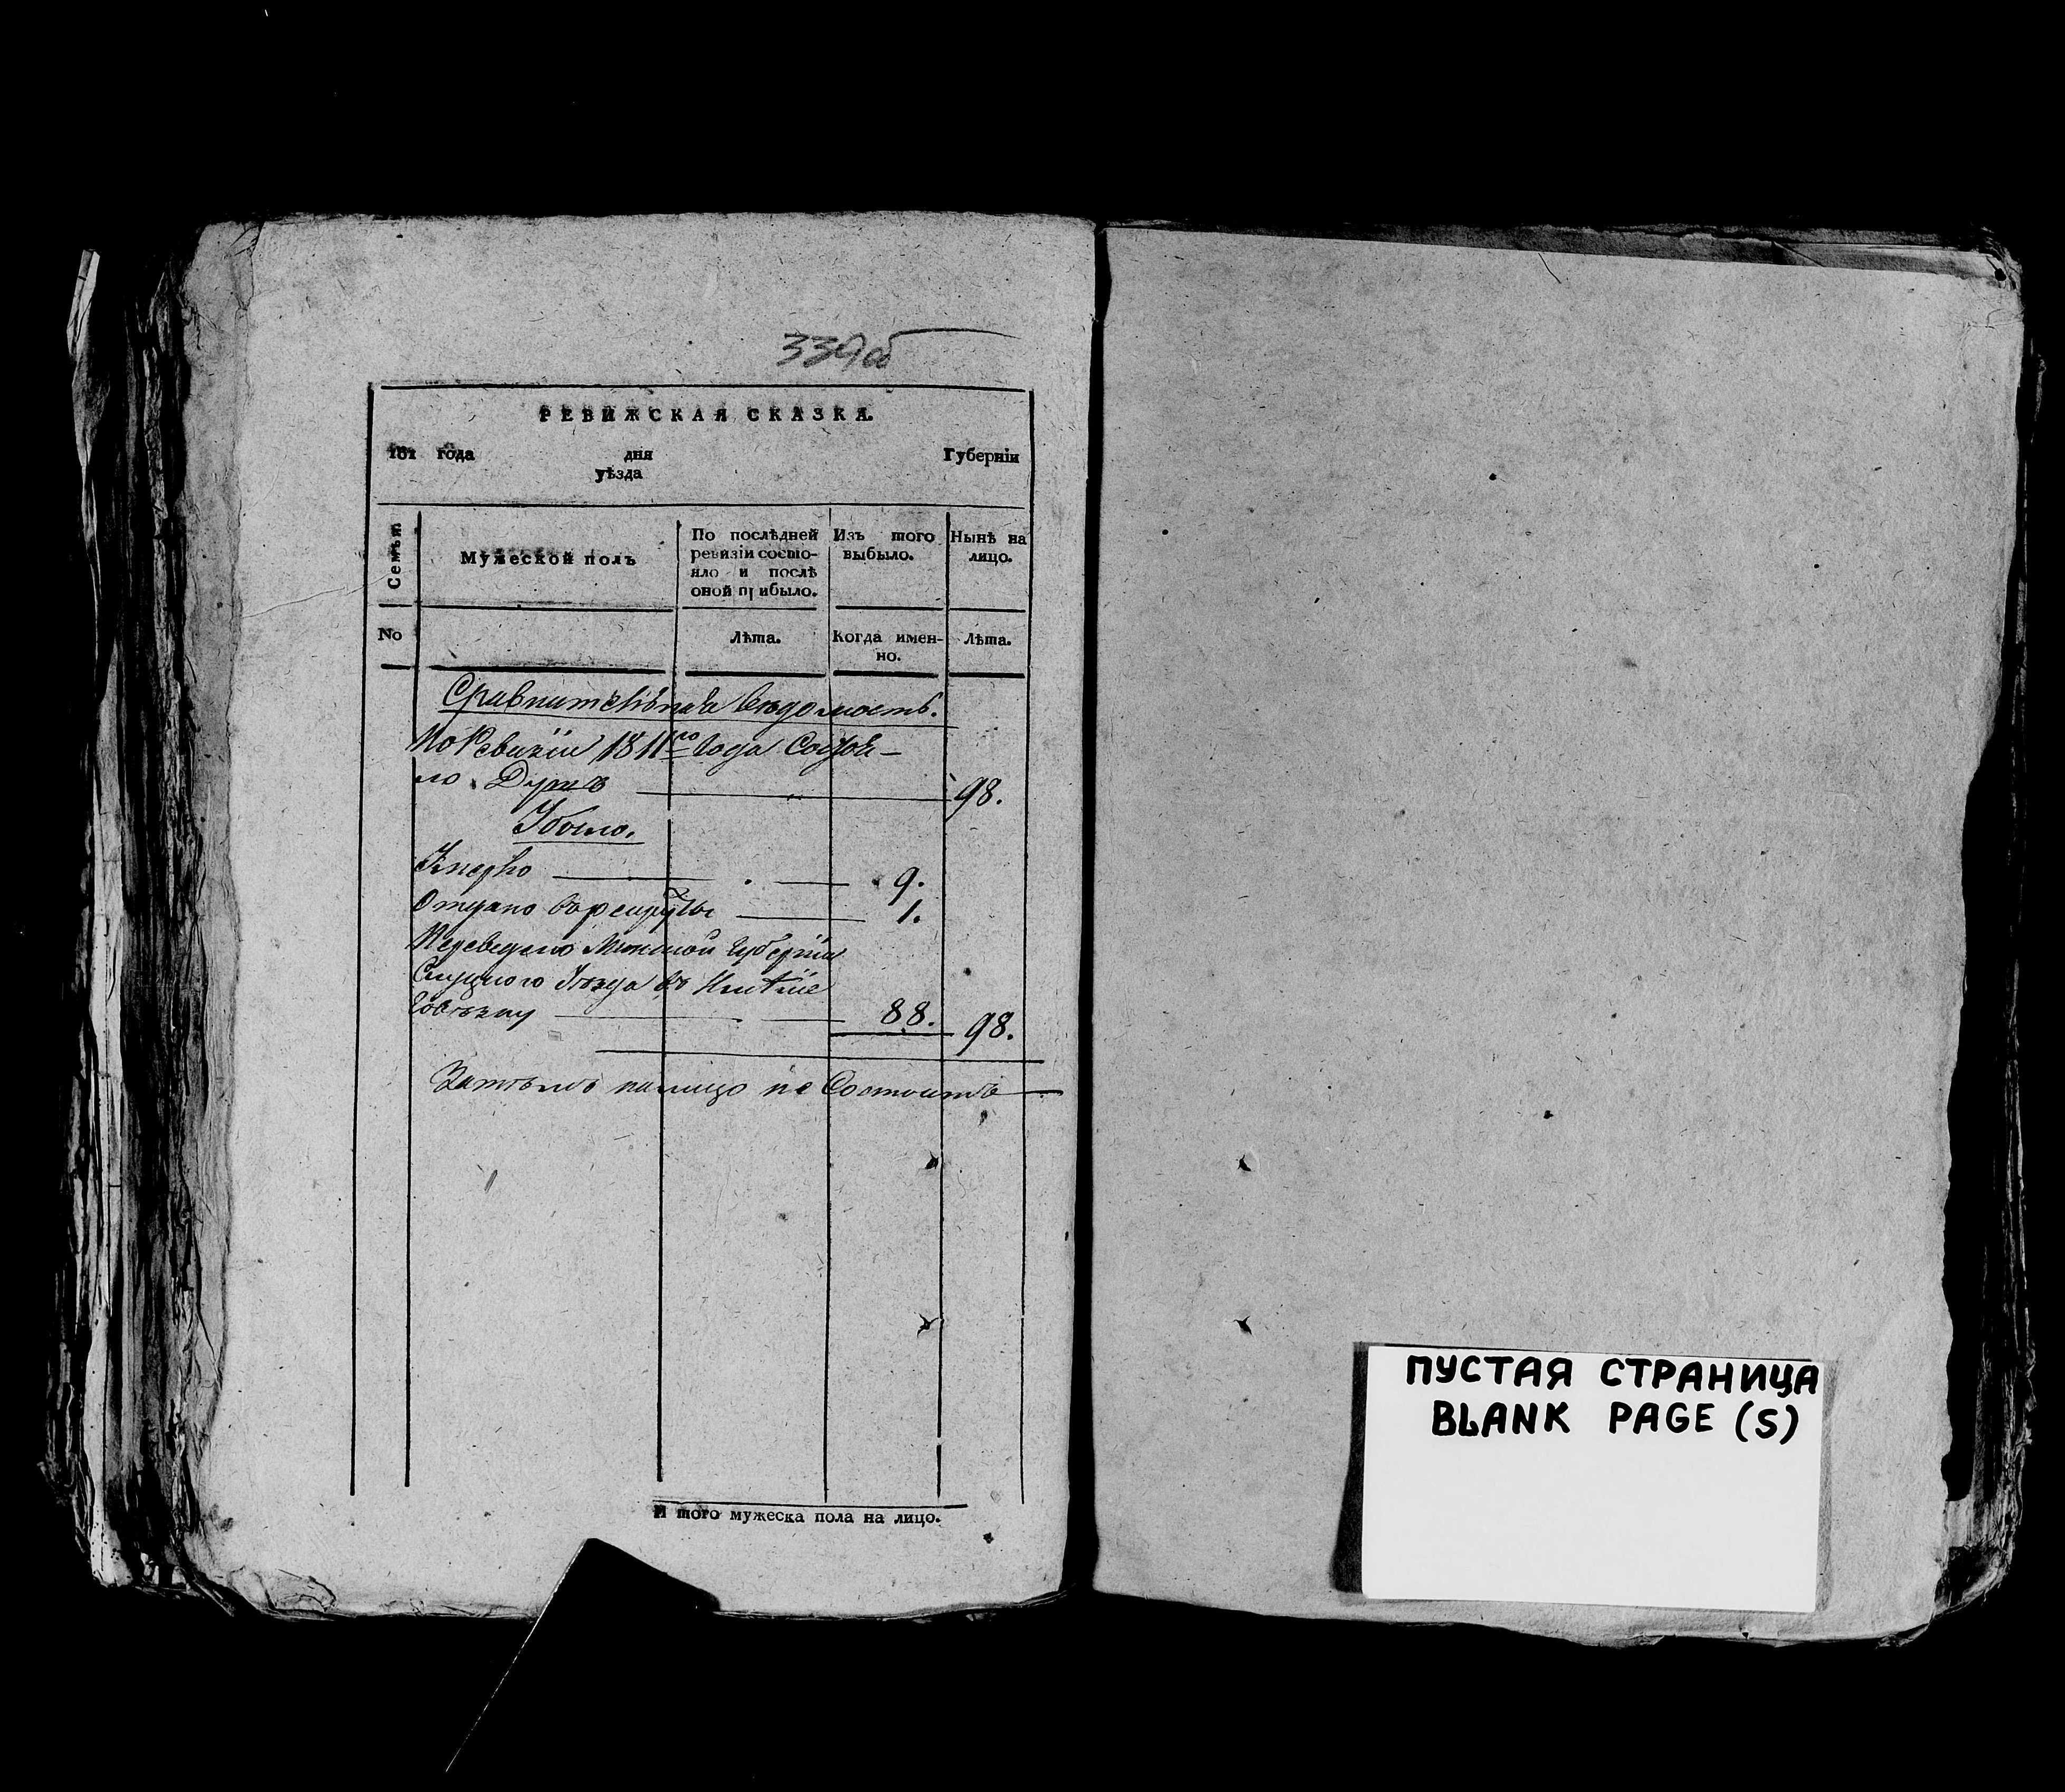 339об
РЕВИЖСКАЯ СКАЗКА.
181 года дня Губерніи
уѣзда
Семьи
Мужеской полъ
По послѣдней ревизіи состо-
яло и послѣ
оной прибыло.
Изъ того
выбыло.
Нынѣ на
лицо.
No
Лѣта.
Когда имен-
но.
Лѣта.
Сравнительная Вѣдомость.
По Ревизіи 1811го Года Состоя-
ло Душъ 98.
Убыло.
Умерло 9.
Отдано въ рекруты 1.
Переведено Минской Губерніи
Слуцкого Уезда въ Имѣніе
88. 98.
Затѣмъ налицо не Состоитъ
И того мужеска пола на лицо.
ПУСТАЯ СТРАНИЦА
BLANK PAGE (S)